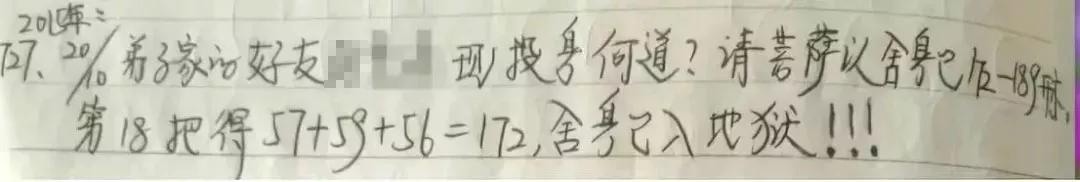 2015年:
127、20/10 弟子家的好友 现投身何道?请菩萨以舍身已后-189
第18把得57+59+56=172,舍身已入地狱!!!